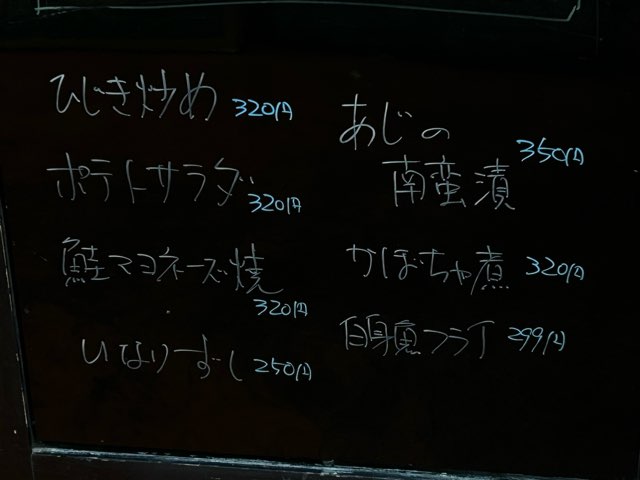 ひじき炒め 320円
ポテトサラダ 320円
鮭マヨネーズ焼 320円
いなりずし 250円
あじの
南蛮漬 350円
かぼちゃ煮 320円
白身魚フライ 299円